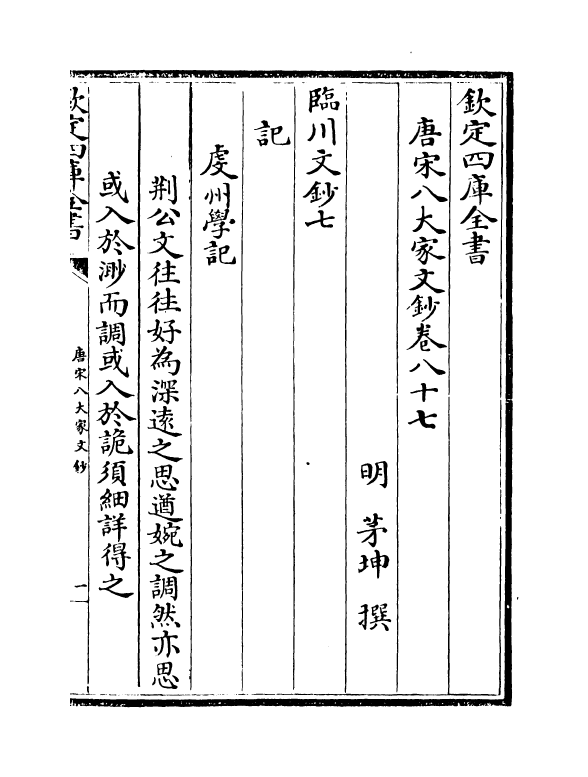 欽定四庫全書
唐宋八大家文鈔卷八十七
明 茅坤 撰
臨川文鈔七
記
虔州學記
荆公文往往好為深逺之思遒婉之調然亦思
或入於渺而調或入於詭須細詳得之
欽定四庫全書
唐宋八大家文鈔
一